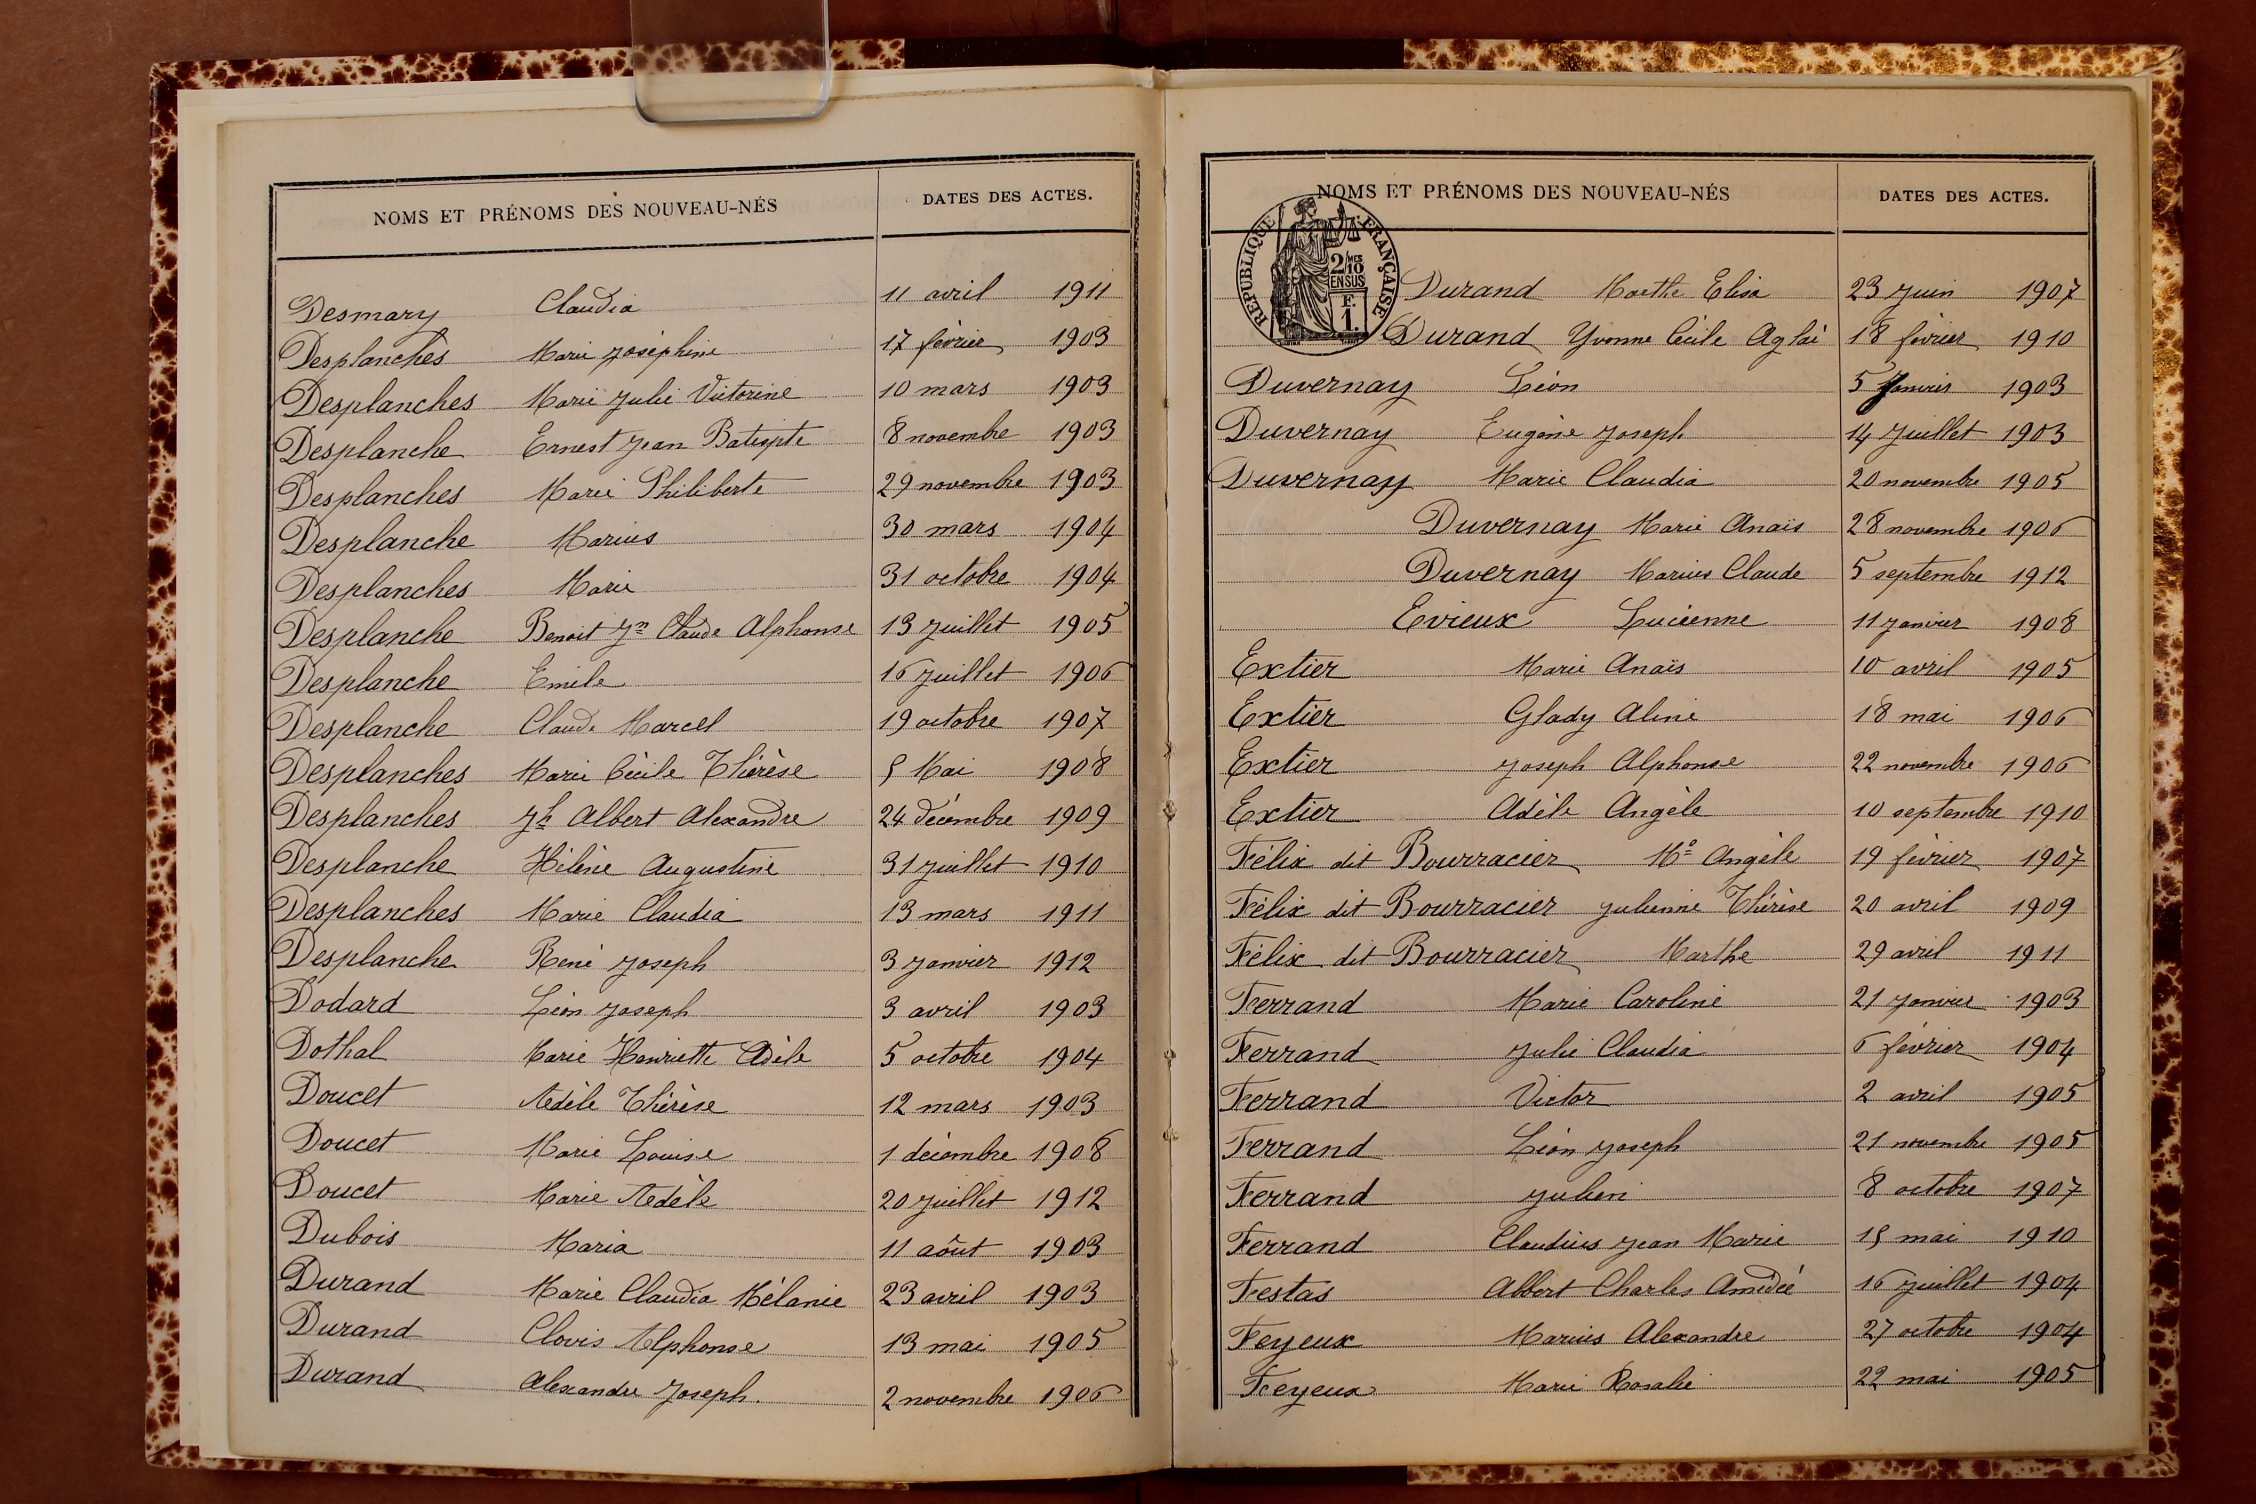 NOMS ET PRÉNOMS DES NOUVEAU-NÉS DATES DES ACTES.
Desmary Claudia 11 avril 1911
Desplanches Marie Joséphine 17 février 1903
Desplanches Marie Julie Victorine 10 mars 1903
Desplanche Ernest Jean Batispte 8 novembre 1903
Desplanches Marie Philiberte 29 novembre 1903
Desplanche Marius 30 mars 1904
Desplanches Marie 31 octobre 1904
Desplanche Benoit Jn Claude Alphonse 13 juillet 1905
Desplanche Emile 16 juillet 1906
Desplanche Claude Marcel 19 octobre 1907
Desplanches Marie Cécile Thérèse 5 Mai 1908
Desplanches Jh Albert Alexandre 24 décembre 1909
Desplanche Hélène Augustine 31 juillet 1910
Desplanches Marie Claudia 13 mars 1911
Desplanche René Joseph 3 janvier 1912
Dodard Léon Joseph 3 avril 1903
Dothal Marie Henriette Adèle 5 octobre 1904
Doucet Adèle Thérèse 12 mars 1903
Doucet Marie Louise 1 décembre 1908
Doucet Marie Adèle 20 juillet 1912
Dubois Maria 11 aôut 1903
Durand Marie Claudia Mélanie 23 avril 1903
Durand Clovis Alphonse 13 mai 1905
Durand Alexandre Joseph. 2 novembre 1906
NOMS ET PRÉNOMS DES NOUVEAU-NÉS DATES DES ACTES.
RÉPUBLIQUE FRANÇAISE
2/10 MES
EN SUS
F.
1.
Durand Marthe Elisa 23 juin 1907
Durand Yvonne Cécile Aglaé 18 février 1910
Duvernay Léon 5 Janvier 1903
Duvernay Eugène Joseph 14 juillet 1903
Duvernay Marie Claudia 20 novembre 1905
Duvernay Marie Anaïs 28 novembre 1906
Duvernay Marius Claude 5 septembre 1912
Evieux Lucienne 11 janvier 1908
Extier Marie Anaïs 10 avril 1905
Extier Glady Aline 18 mai 1906
Extier Joseph Alphonse 22 novembre 1906
Extier Adèle Angèle 10 septembre 1910
Félix dit Bourracier Me Angèle 19 février 1907
Félix dit Bourracier Julienne Thérèse 20 avril 1909
Félix dit Bourracier Marthe 29 avril 1911
Ferrand Marie Caroline 21 janvier 1903
Ferrand Julie Claudia 6 février 1904
Ferrand Victor 2 avril 1905
Ferrand Léon Joseph 21 novembre 1905
Ferrand Julien 8 octobre 1907
Ferrand Claudius Jean Marie 15 mai 1910
Festas Albert Charles Amédée 16 juillet 1904
Feyeux Marius Alexandre 27 octobre 1904
Feyeux Marie Rosalie 22 mai 1905